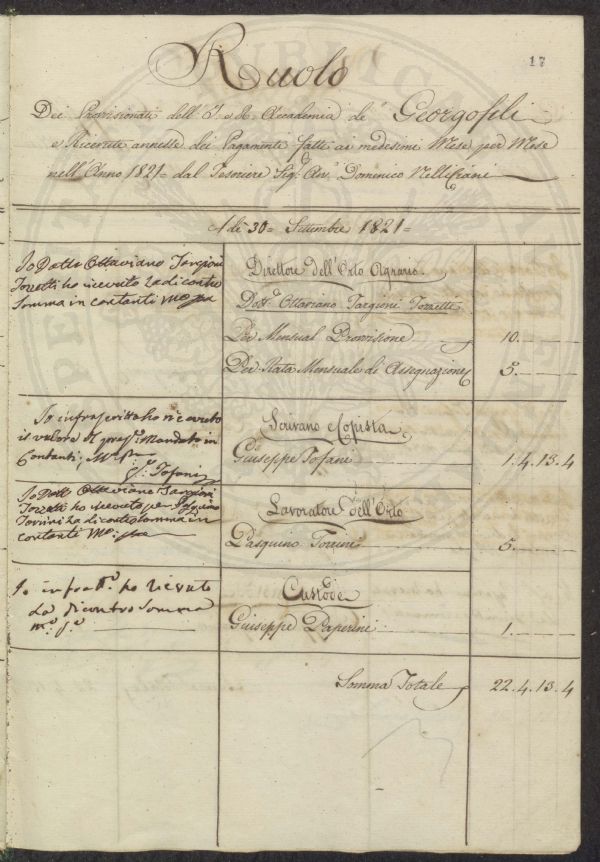 17
Ruolo
Dei Provisionati dell'I. e R. Accademia de' Georgofili
e Ricevute annesse dei Pagamenti fatti ai medesimi Mese per Mese
nell'Anno 1821= dal Tesoriere Sig.
Domenico
A dì 30= Settembre 1821=
Io Dott. Ottaviano Targioni
Tozzetti ho ricevuto la di contro
Somma in contanti Mo. pa
Direttore dell'Orto Agrario
Dott. Ottaviano Targioni Tozzetti
Per Mensual Provvisione 10.
Per Rata Mensuale di Assegnazione 5.
Io infrascritto ho ricevuto
il valore del pres. Mandato in
Contanti, M. pa
G. Tofani
Scrivano e Copista
Giuseppe Tofani 1.4.13.4
Io Dott. Ottaviano Targioni
Tozzetti ho ricevuto per Pasquino
Torrini la di contro Somma in
contanti Mo. pa
Lavoratore dell'Orto
Pasquino Torrini 5.
Io infratt. ho ricevuto
la di contro Somma
m. p.
Custode
Giuseppe Paperini 1.
Somma Totale 22.4.13.4